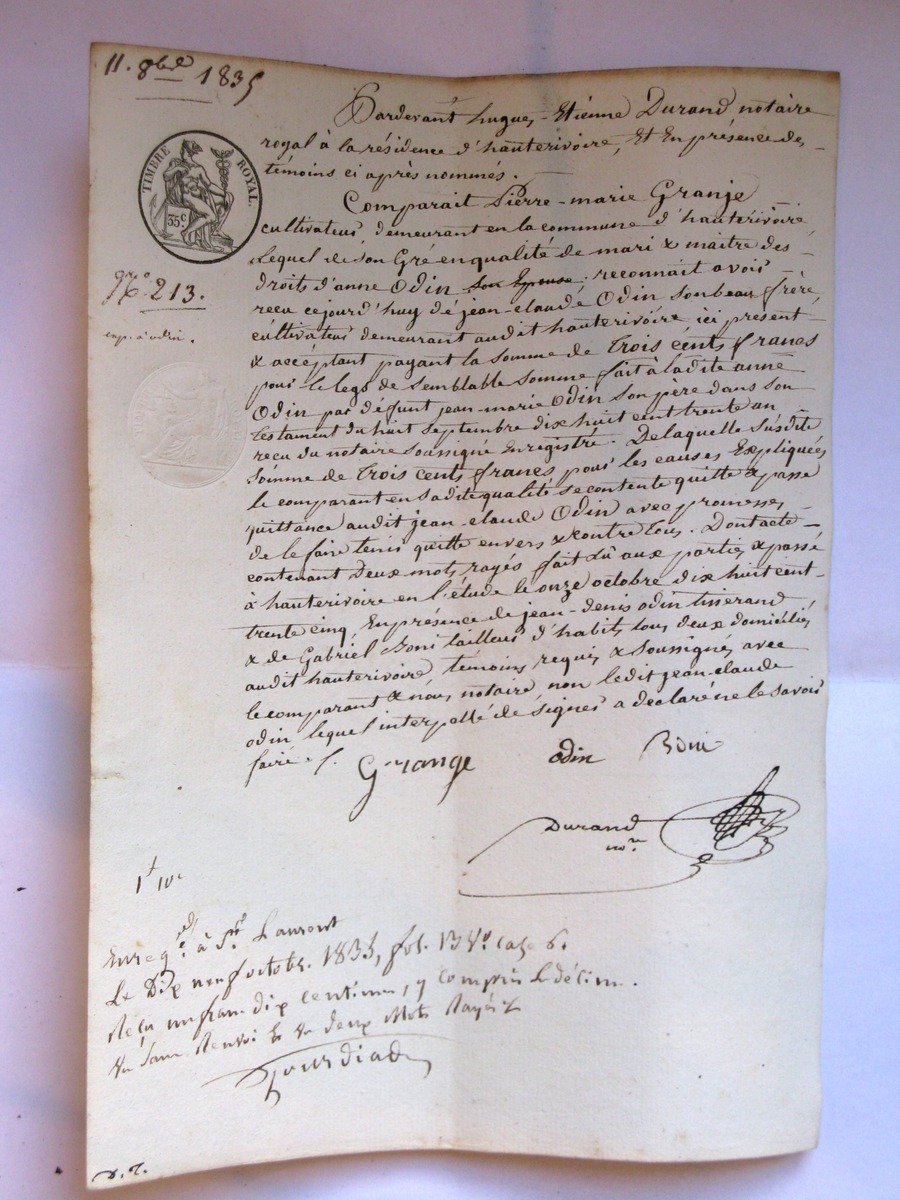 11. 8bre 1835
Pardevant hugues-Etienne Durand notaire
royal à la résidence d'hauterivoire, Et En présence des
témoins ci après nommés.
TIMBRE ROYAL.
35c
Comparait Pierre-marie Granje
cultivateur, demeurant en la commune d'hauterivoire
Lequel de son Gré en qualité de mari & maitre des
droits d'anne Odin son Epouse reconnait avoir
No. 213.
recu cejourd'huy de jean-claude Odin son beau frère,
cultivateur demeurant audit hauterivoire, ici present
exp. à odin.
& acceptant payant la somme de Trois cents francs
pour le legs de semblable somme fait à ladite anne
Odin par défunt jean-marie Odin son père dans son
testament du huit septembre dix huit cent trente un
recu du notaire soussigné Enregistré. Delaquelle susdite
somme de Trois cents francs pour les causes Expliquées
le comparant en sadite qualité se contente quitte & passe
quittance audit jean-claude Odin avec promesses
de le faire tenir quitte envers & contre tous. Dont acte
contenant Deux mots rayés fait Lû aux parties & passé
à hauterivoire en l'étude le onze octobre dix huit cent
trente cinq, En présence de jean-denis odin tisserand
& de Gabriel Boni tailleur d'habits tous deux domiciliés
audit hauterivoire, témoins requis & soussignés avec
le comparant & nous notaire, non ledit jean-claude
odin lequel interpellé de signer a déclaré ne le savoir
faire. /.
Grange odin Boni
Durand
nore
1f 10c
Enregé à St Laurent
Le Dix neuf octobre 1835, fol. 13 Vo. case 6.
Reçu un franc dix centimes, y compris le décime.
sans Renvoi & deux Mots Rayés
D. T.